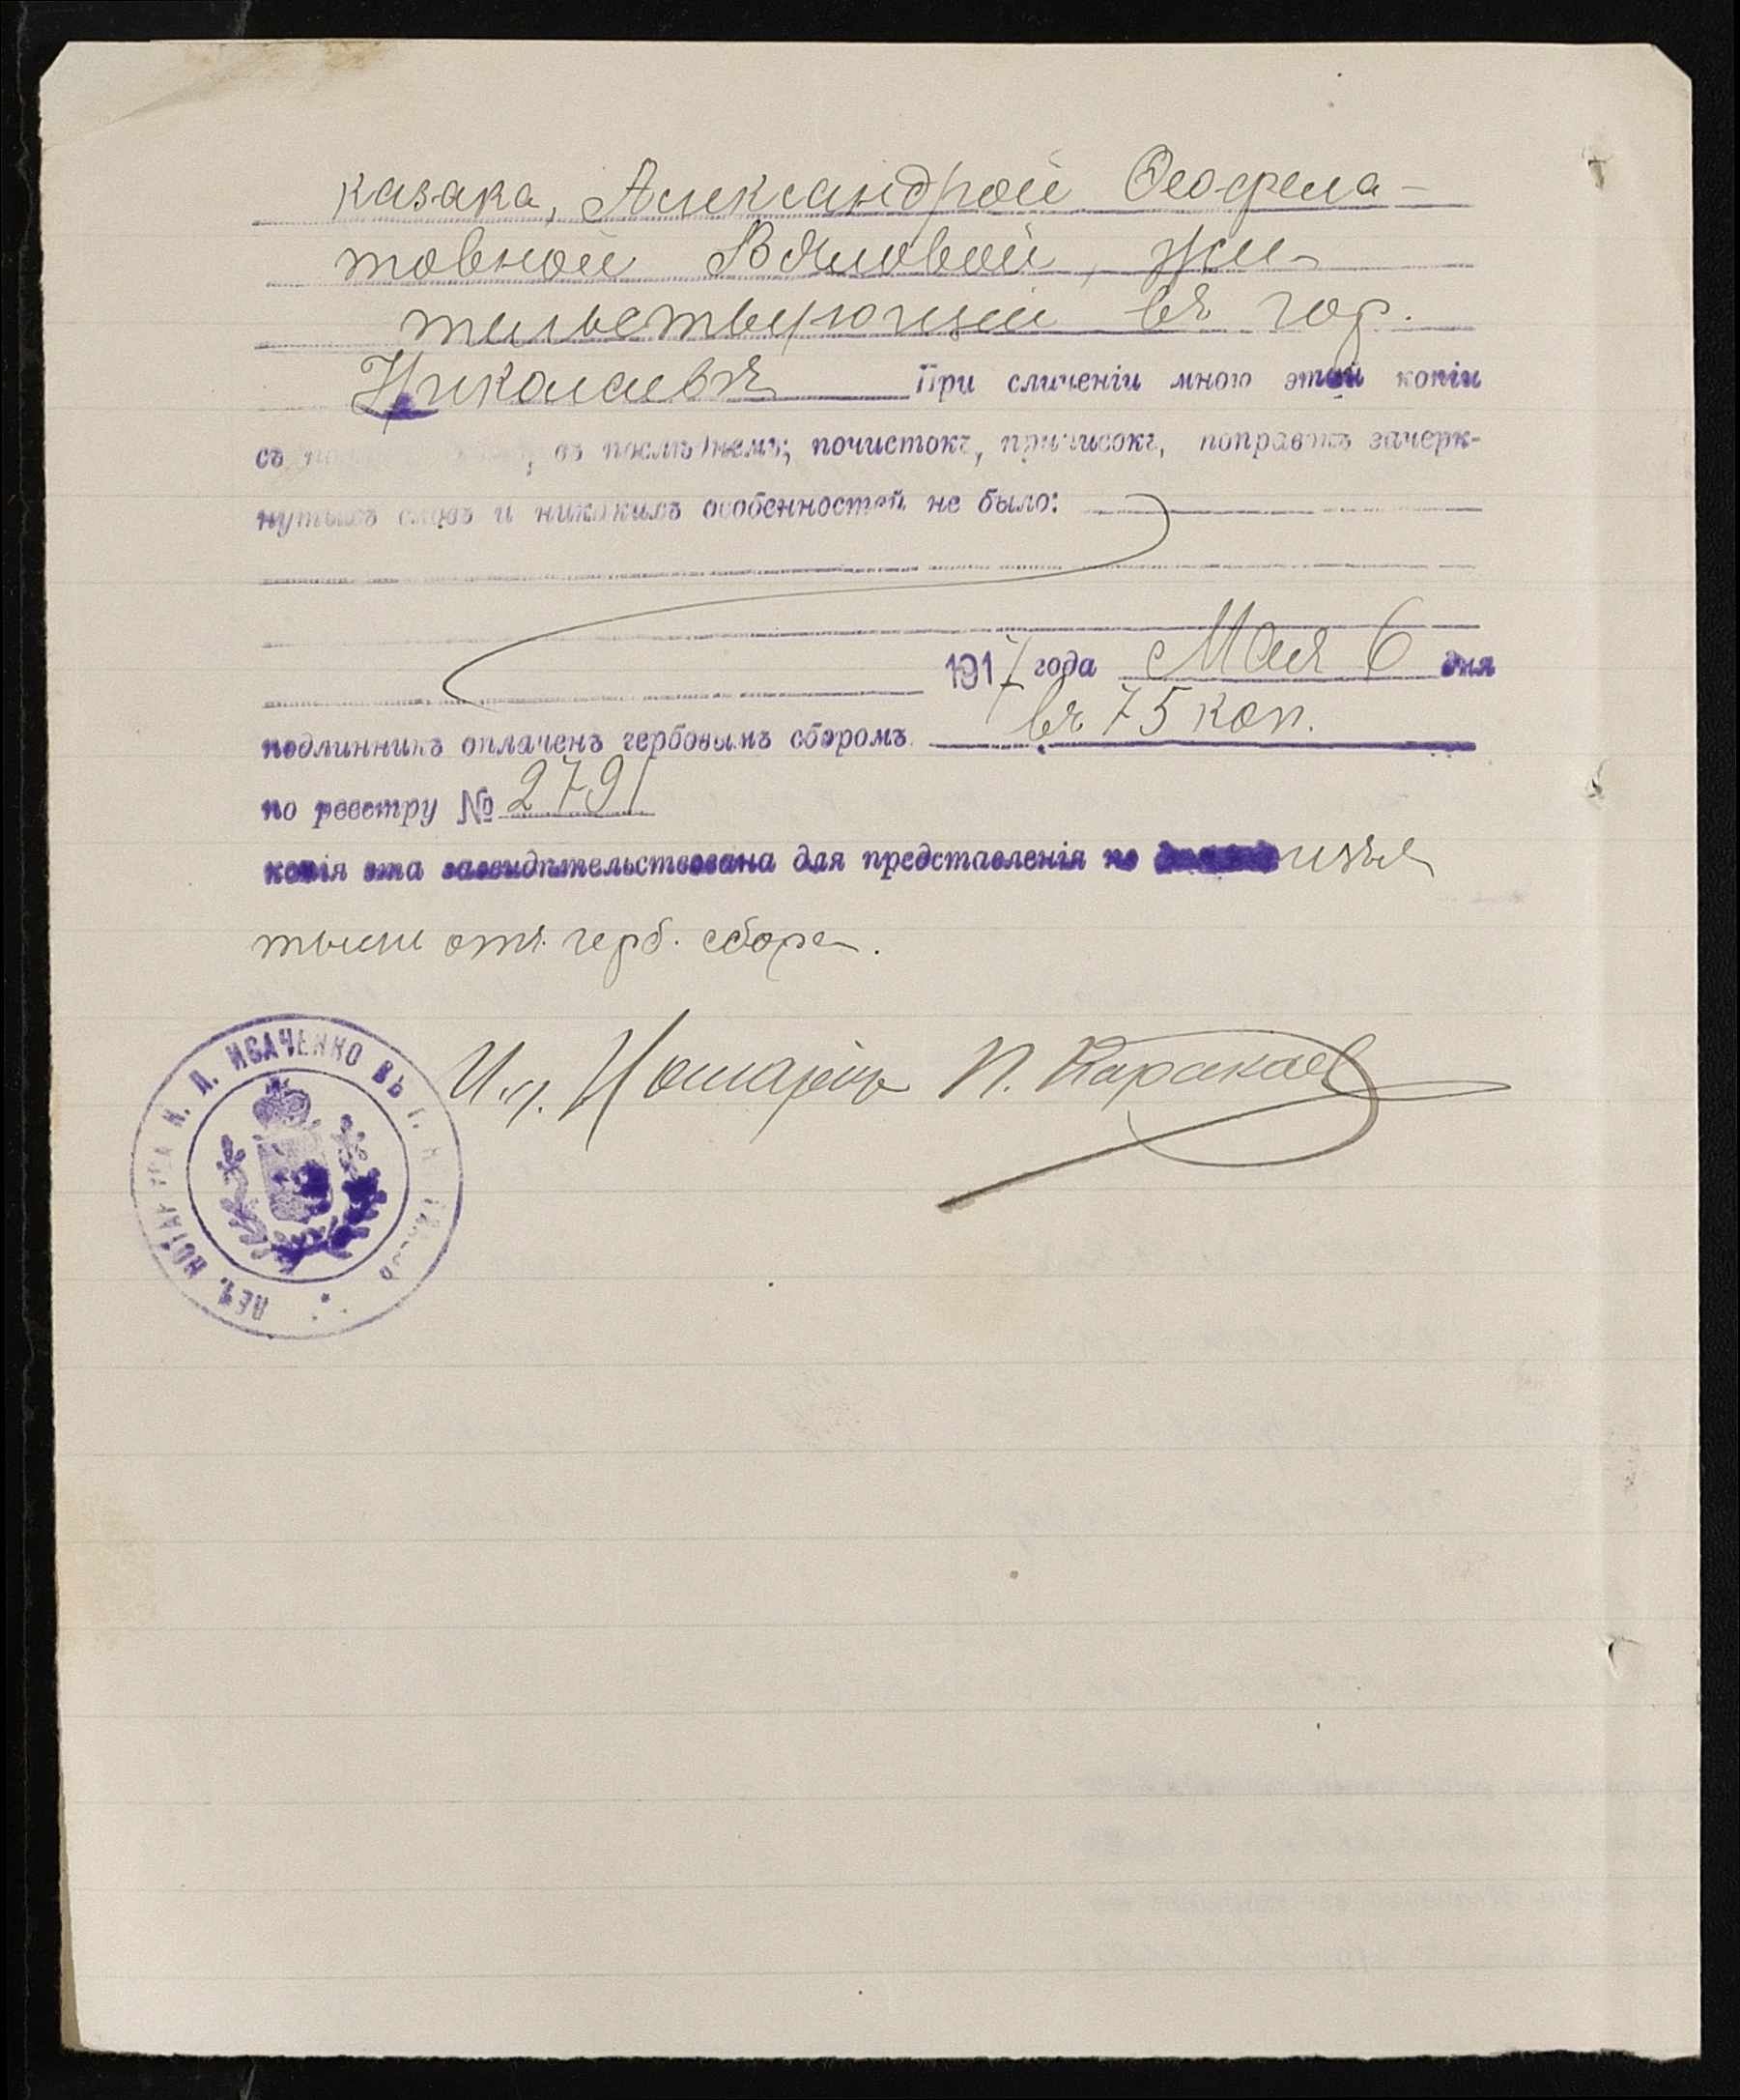 казака, Александрой Ѳеофила-
товной Вяловой, жи-
тельствующей въ гор.
Николаевѣ При сличеніи мною этой копіи
съ , въ послѣднемъ; почистокъ, приписокъ, поправокъ зачерк-
нутыхъ словъ и никакихъ особенностей не было:
1917 года Мая 6 дня
подлинникъ оплаченъ гербовымъ сборомъ въ 75 коп.
по реестру № 2791
копія эта засвидѣтельствована для представленія по изъя
тыми отъ герб. сбора.
И. д. Нотаріуса П.
ПЕЧ. НОТАРІУСА И. А. ИСАЧЕНКО ВЪ Г.